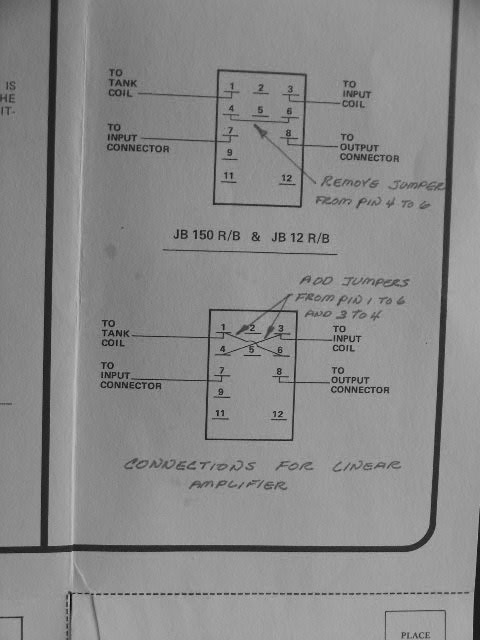 IS
HE
IT-
TO
TANK
COIL
1 2 3
TO
INPUT
COIL
4 5 6
TO
INPUT
CONNECTOR
7 8
TO
OUTPUT
CONNECTOR
9
11 12
REMOVE JUMPER
FROM PIN 4 TO 6
JB 150 R/B & JB 12 R/B
ADD JUMPERS
FROM PIN 1 TO 6
AND 3 TO 4
TO
TANK
COIL
1 2 3
TO
INPUT
COIL
4 5 6
TO
INPUT
CONNECTOR
7 8
TO
OUTPUT
CONNECTOR
9
11 12
CONNECTIONS FOR LINEAR
AMPLIFIER
PLACE